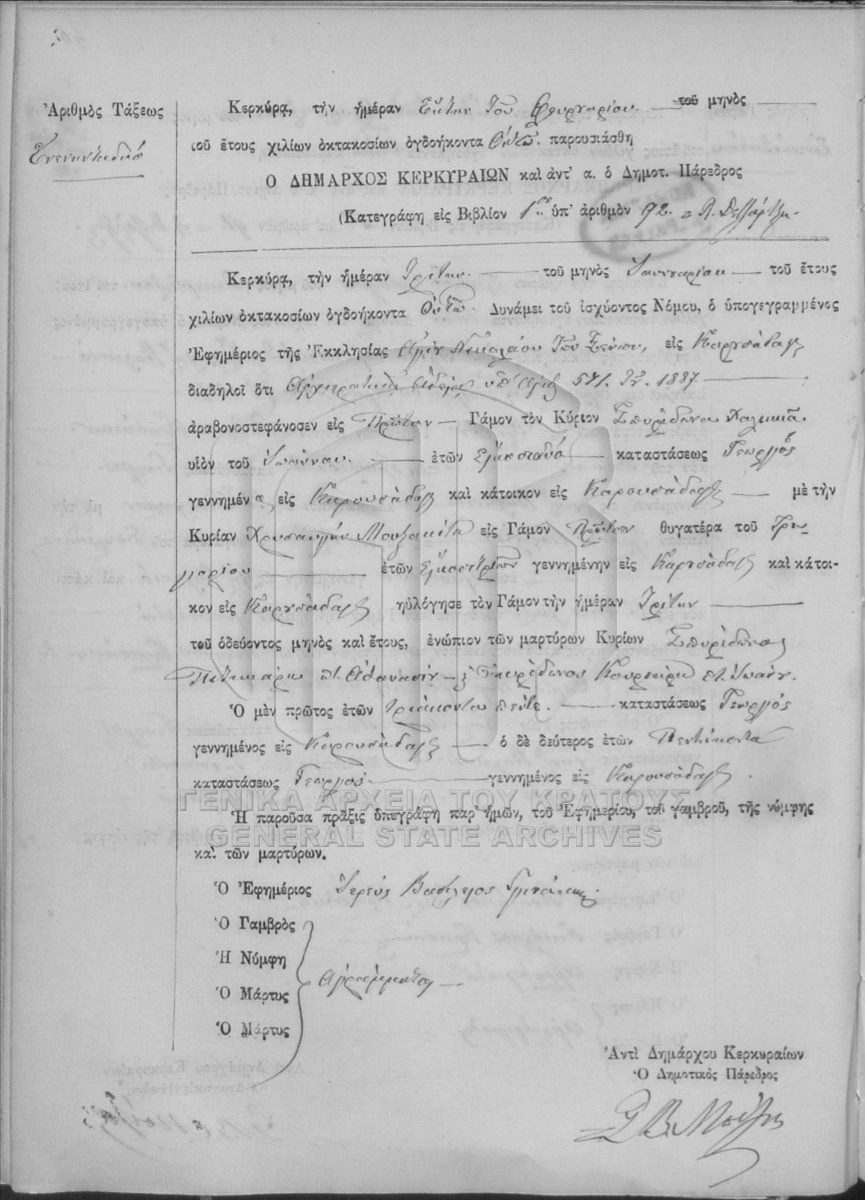 Ἀριθμὸς Τάξεως
Ἐνενηκταδυό
Κερκύρᾳ, τὴν ἡμέραν Ἕκτην τοῦ Φεβρουαρίου τοῦ μηνὸς
τοῦ ἔτους χιλίων ὀκτακοσίων ὀγδοήκοντα Ὀκτώ. παρουσιάσθη
Ο ΔΗΜΑΡΧΟΣ ΚΕΡΚΥΡΑΙΩΝ καὶ ἀντ' α. ὁ Δημοτ. Πάρεδρος
(Κατεγράφη εἰς Βιβλίον 1ον ὑπ' ἀριθμὸν 92.
Κερκύρᾳ, τὴν ἡμέραν Τρίτην τοῦ μηνὸς Ἰαννουαρίου τοῦ ἔτους
χιλίων ὀκτακοσίων ὀγδοήκοντα Ὀκτώ. Δυνάμει τοῦ ἰσχύοντος Νόμου, ὁ ὑπογεγραμμένος
Ἐφημέριος τῆς Ἐκκλησίας Ἁγίου Νικολάου τῶν Ξένων, εἰς Καρουσάδες
διαδηλοῖ ὅτι Ἀρχιερατικῇ Ἀδείᾳ ὑπ' ἀριθ 571. 1887
ἀραβονοστεφάνοσεν εἰς Πρῶτον Γάμον τὸν Κύριον Σπυρίδωνα
υἱὸν τοῦ Ἰωάννου. ἐτῶν Εἰκοσιδυό καταστάσεως Γεωργὸς
γεννημένον εἰς Καρουσάδες καὶ κάτοικον εἰς Καρουσάδες μὲ τὴν
Κυρίαν Χρυσάνθην Μουζακίτη εἰς Γάμον Πρῶτον θυγατέρα τοῦ Γρη
γορίου ἐτῶν Εἰκοσιτριῶν γεννημένην εἰς Καρουσάδες καὶ κάτοι-
κον εἰς Καρουσάδες ηὐλόγησε τὸν Γάμον τὴν ἡμέραν Τρίτην
τοῦ ὁδεύοντος μηνὸς καὶ ἔτους, ἐνώπιον τῶν μαρτύρων Κυρίων Σπυρίδωνος
Ἀθανασίου Σπυρίδωνος Ἰωάν.
Ὁ μὲν πρῶτος ἐτῶν τριάκοντα πέντε. καταστάσεως Γεωργὸς
γεννημένος εἰς Καρουσάδες ὁ δὲ δεύτερος ἐτῶν Πεντήκοντα
καταστάσεως Γεωργός γεννημένος εἰς Καρουσάδες.
ΓΕΝΙΚΑ ΑΡΧΕΙΑ ΤΟΥ ΚΡΑΤΟΥΣ
Ἡ παροῦσα πρᾶξις ὑπεγράφη παρ' ἡμῶν, τοῦ Ἐφημερίου, τοῦ γαμβροῦ, τῆς νύμφης
GENERAL STATE ARCHIVES
καὶ τῶν μαρτύρων.
Ὁ Ἐφημέριος Ἱερεὺς Βασίλειος
Ὁ Γαμβρὸς
Ἡ Νύμφη
Ἀγράμματοι
Ὁ Μάρτυς
Ὁ Μάρτυς
Ἀντὶ Δημάρχου Κερκυραίων
Ὁ Δημοτικὸς Πάρεδρος